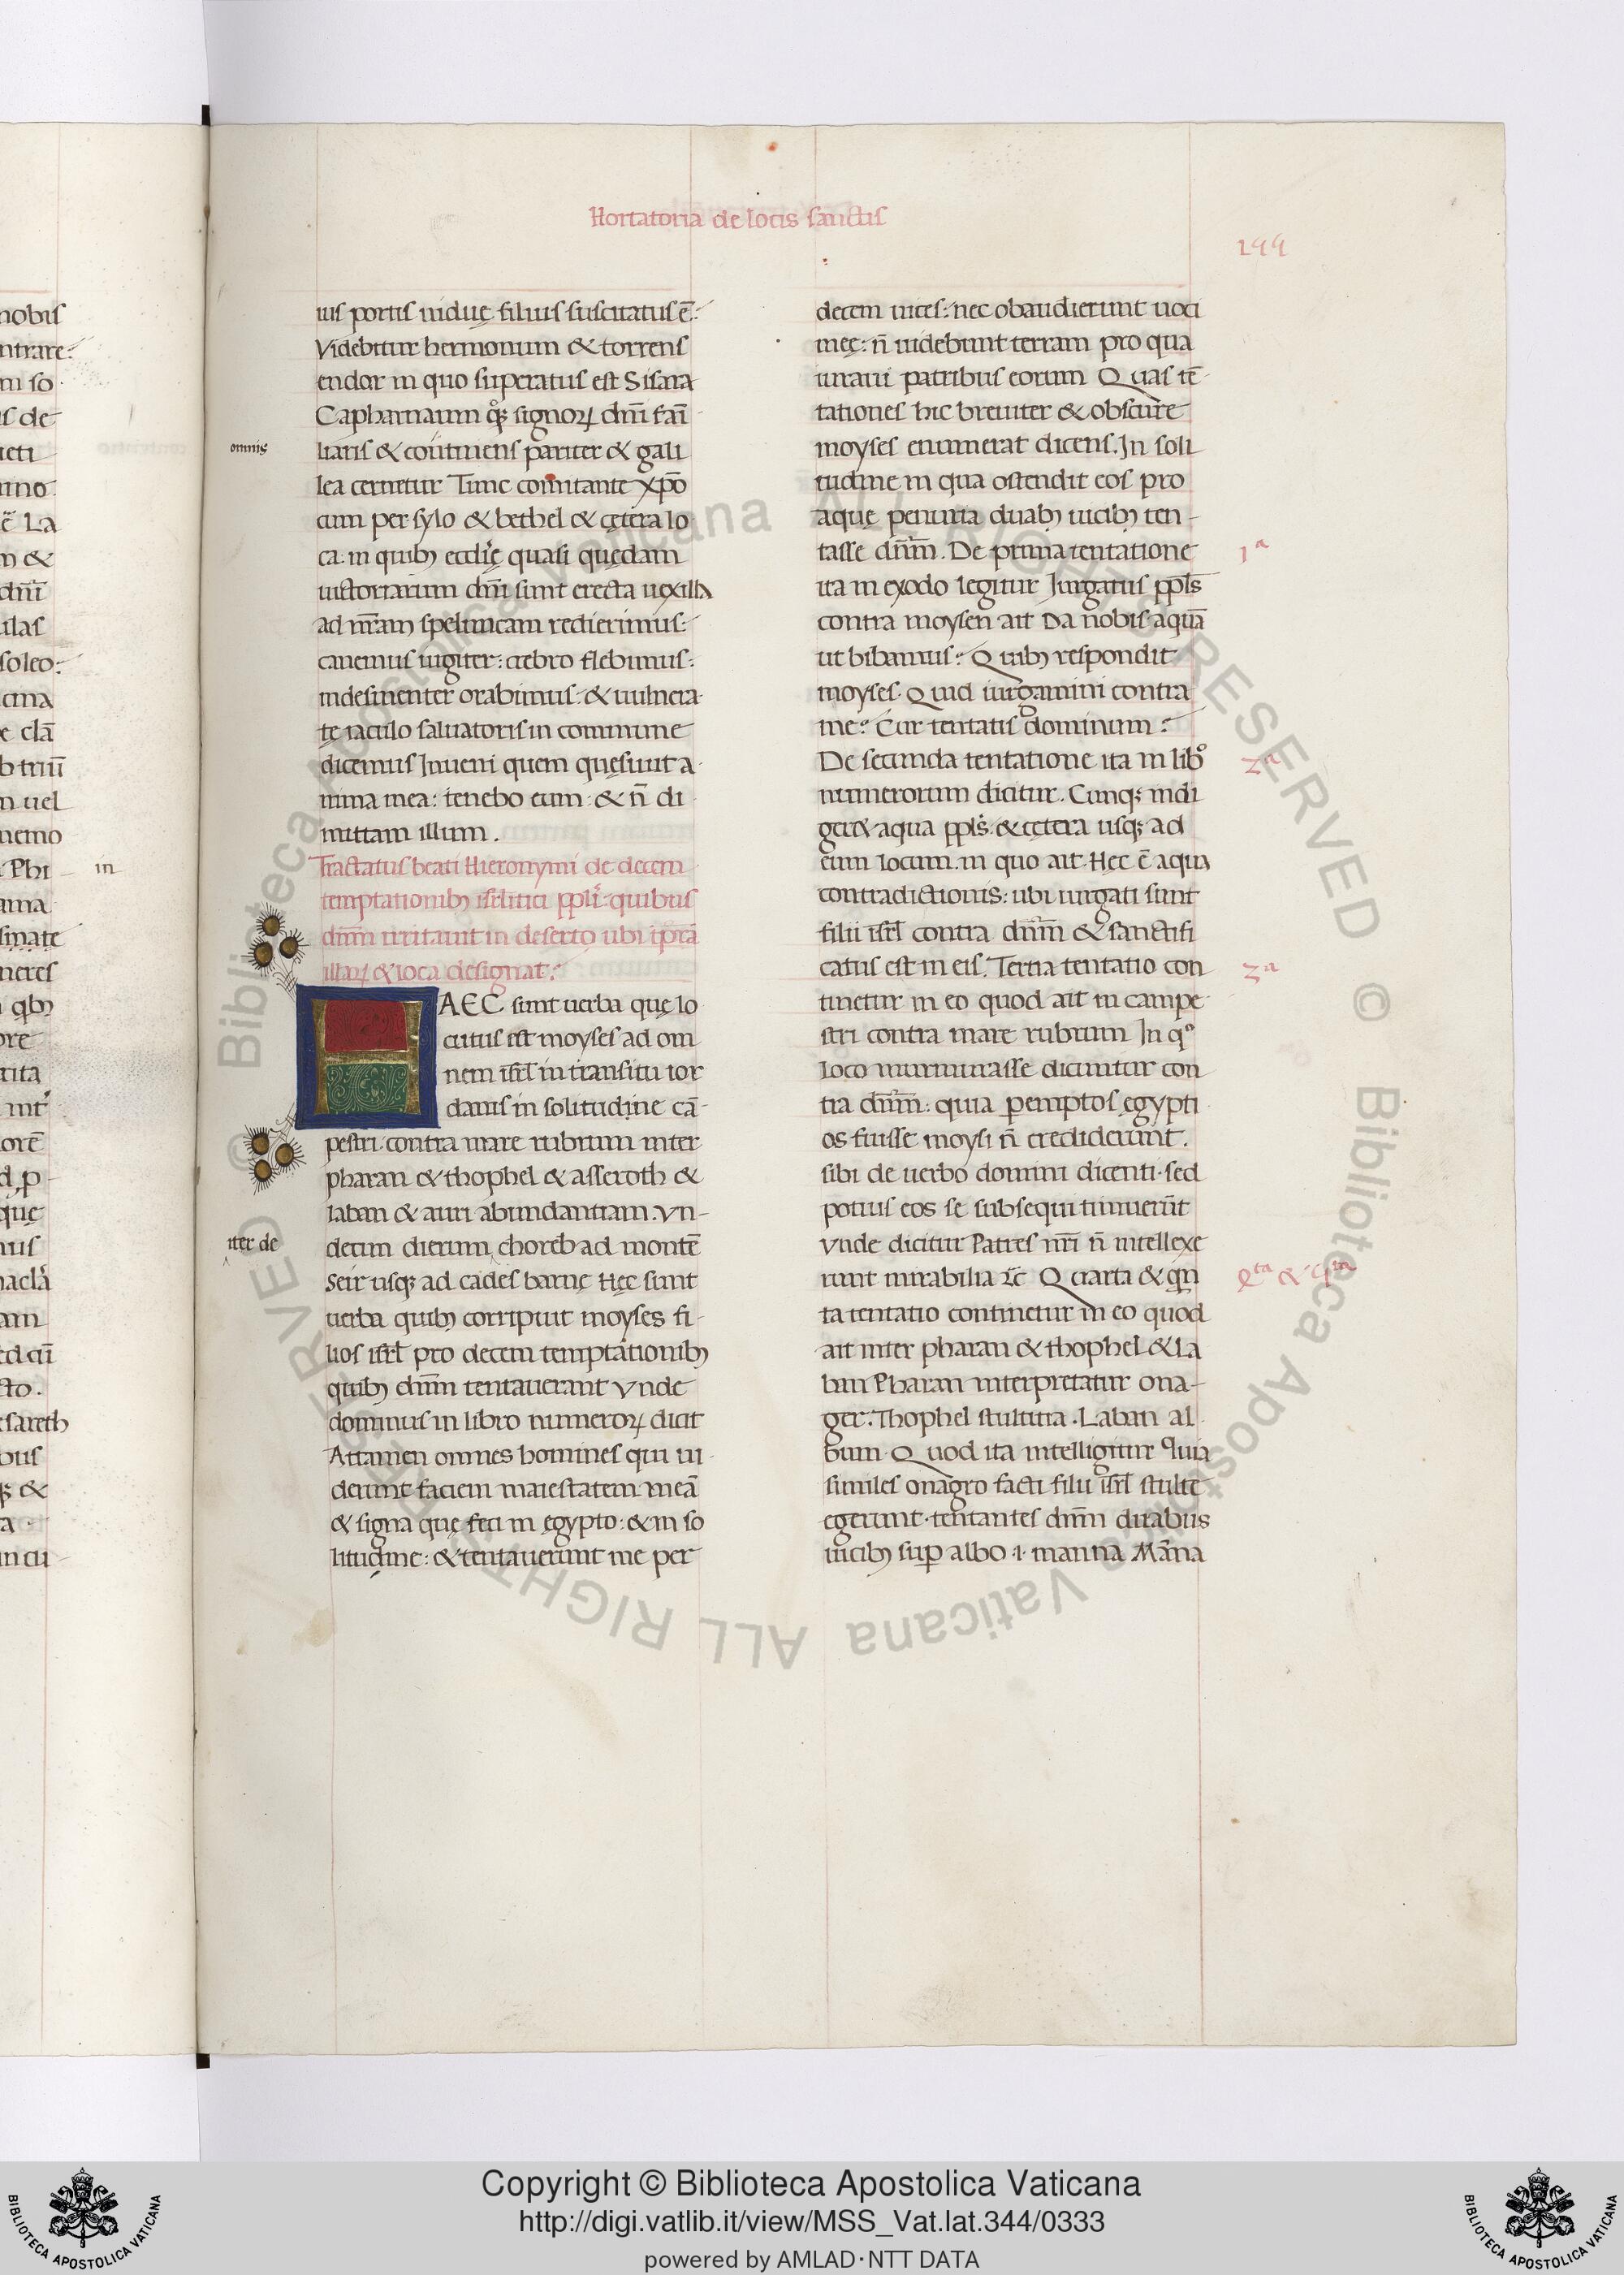 Hortatoria de locis sanctis
199
ius portis uiduę filius suscitatus ē:
Videbitur hermonum & torrens
endor in quo superatus est Sisara
Capharnaum qq̃ signoꝝ dñi fãi
omnis
liaris & continens pariter & gali
lea cernetur Tunc comitante xp̄o
cum per sylo & bethel & cętera lo
ca. in quibꝰ eccl̄ię quasi quędam
uictoriarum dñi sunt erecta uexilla
ad nr̄am speluncam redierimus:
canemus iugiter: crebro flebimus:
indesinenter orabimus: & uulnera
tę iaculo saluatoris in commune
dicemus Inueni quem quęsiuit a
nima mea: tenebo eum & ñ di
mittam illum.
Tractatus beati Hieronymi de decem
temptationibꝰ isrlitici ppl̄i: quibus
dñm irritauit in deserto ubi ip̄ã
illaꝝ & loca designat:
AEC sunt uerba quę lo
cutus est moyses ad om
nem isrl̄ in transitu ior
danis in solitudine cã-
pestri contra mare rubrum inter
pharan & thophel & asseroth &
laban & auri abundantiam. Vn-
iter de
decim dierum choreb ad montē
Seir usqꝫ ad cades barnę Hęc sunt
uerba quibꝰ corripuit moyses fi-
lios isrl̄ pro decem temptationibꝰ
quibꝰ dñm tentauerant Vnde
dominus in libro numeroꝝ dicit
Attamen omnes homines qui ui
derunt faciem maiestatem meã
& signa quę feci in ęgypto: & in so
litudine: & tentauerunt me per
decem uices: nec obaudierunt uoci
meę: ñ uidebunt terram pro qua
iuraui patribus eorum Quas tē-
tationes hic breuiter & obscure
moyses enumerat dicens. In soli
tudine in qua ostendit eos pro
aque penuria duabꝰ uicibꝰ ten-
tasse dñm. De prima tentatione
1ª
ita in exodo legitur Iurgatus ppl̄s
contra moysen ait Da nobis aquã
ut bibamus: Quibꝰ respondit
moyses. Quid iurgamini contra
me? Cur tentatis dominum?
De secunda tentatione ita in lib°
2ª
numerorum dicitur. Cunqꝫ indi
ger& aqua ppl̄s. & cętera usqꝫ ad
eum locum. in quo ait Hęc ē aqua
contradictionis: ubi iurgati sunt
filii isrl̄ contra dñm & sanctifi
catus est in eis. Tertia tentatio con
3ª
tinetur in eo quod ait in campe
stri contra mare rubrum In q°
loco murmurasse dicuntur con
tra dñm: quia peremptos ęgypti
os fuisse moysi ñ crediderunt.
sibi de uerbo domini dicenti sed
potius eos se subsequi timuerũt
Vnde dicitur Patres nr̄i ñ intellexe
runt mirabilia &̄c Quarta & qũ
4ta & 5ta
ta tentatio continetur in eo quod
ait inter pharan & thophel & La
ban Pharan interpretatur ona-
ger. Thophel stultitia. Laban al
bum. Quod ita intelligitur Quia
similes onagro facti filii isrl̄ stulte
egerunt. tentantes dñm duabus
uicibꝰ sup̱ albo .i. manna Mãna
Copyright © Biblioteca Apostolica Vaticana
http://digi.vatlib.it/view/MSS_Vat.lat.344/0333
powered by AMLAD·NTT DATA